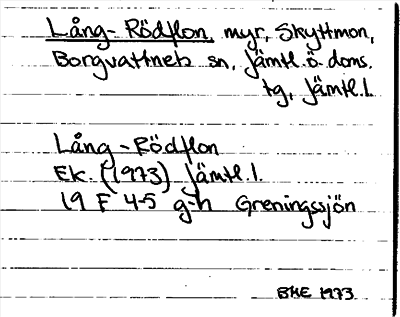 Lång-Rödflon, myr, Skyttmon,
Borgvattnets sn, Jämtl. ö. doms.
tg, Jämtl. l.
Lång-Rödflon
Ek. (1973) Jämtl. l.
19 F 4-5 g-h Greningssjön
BHE 1973